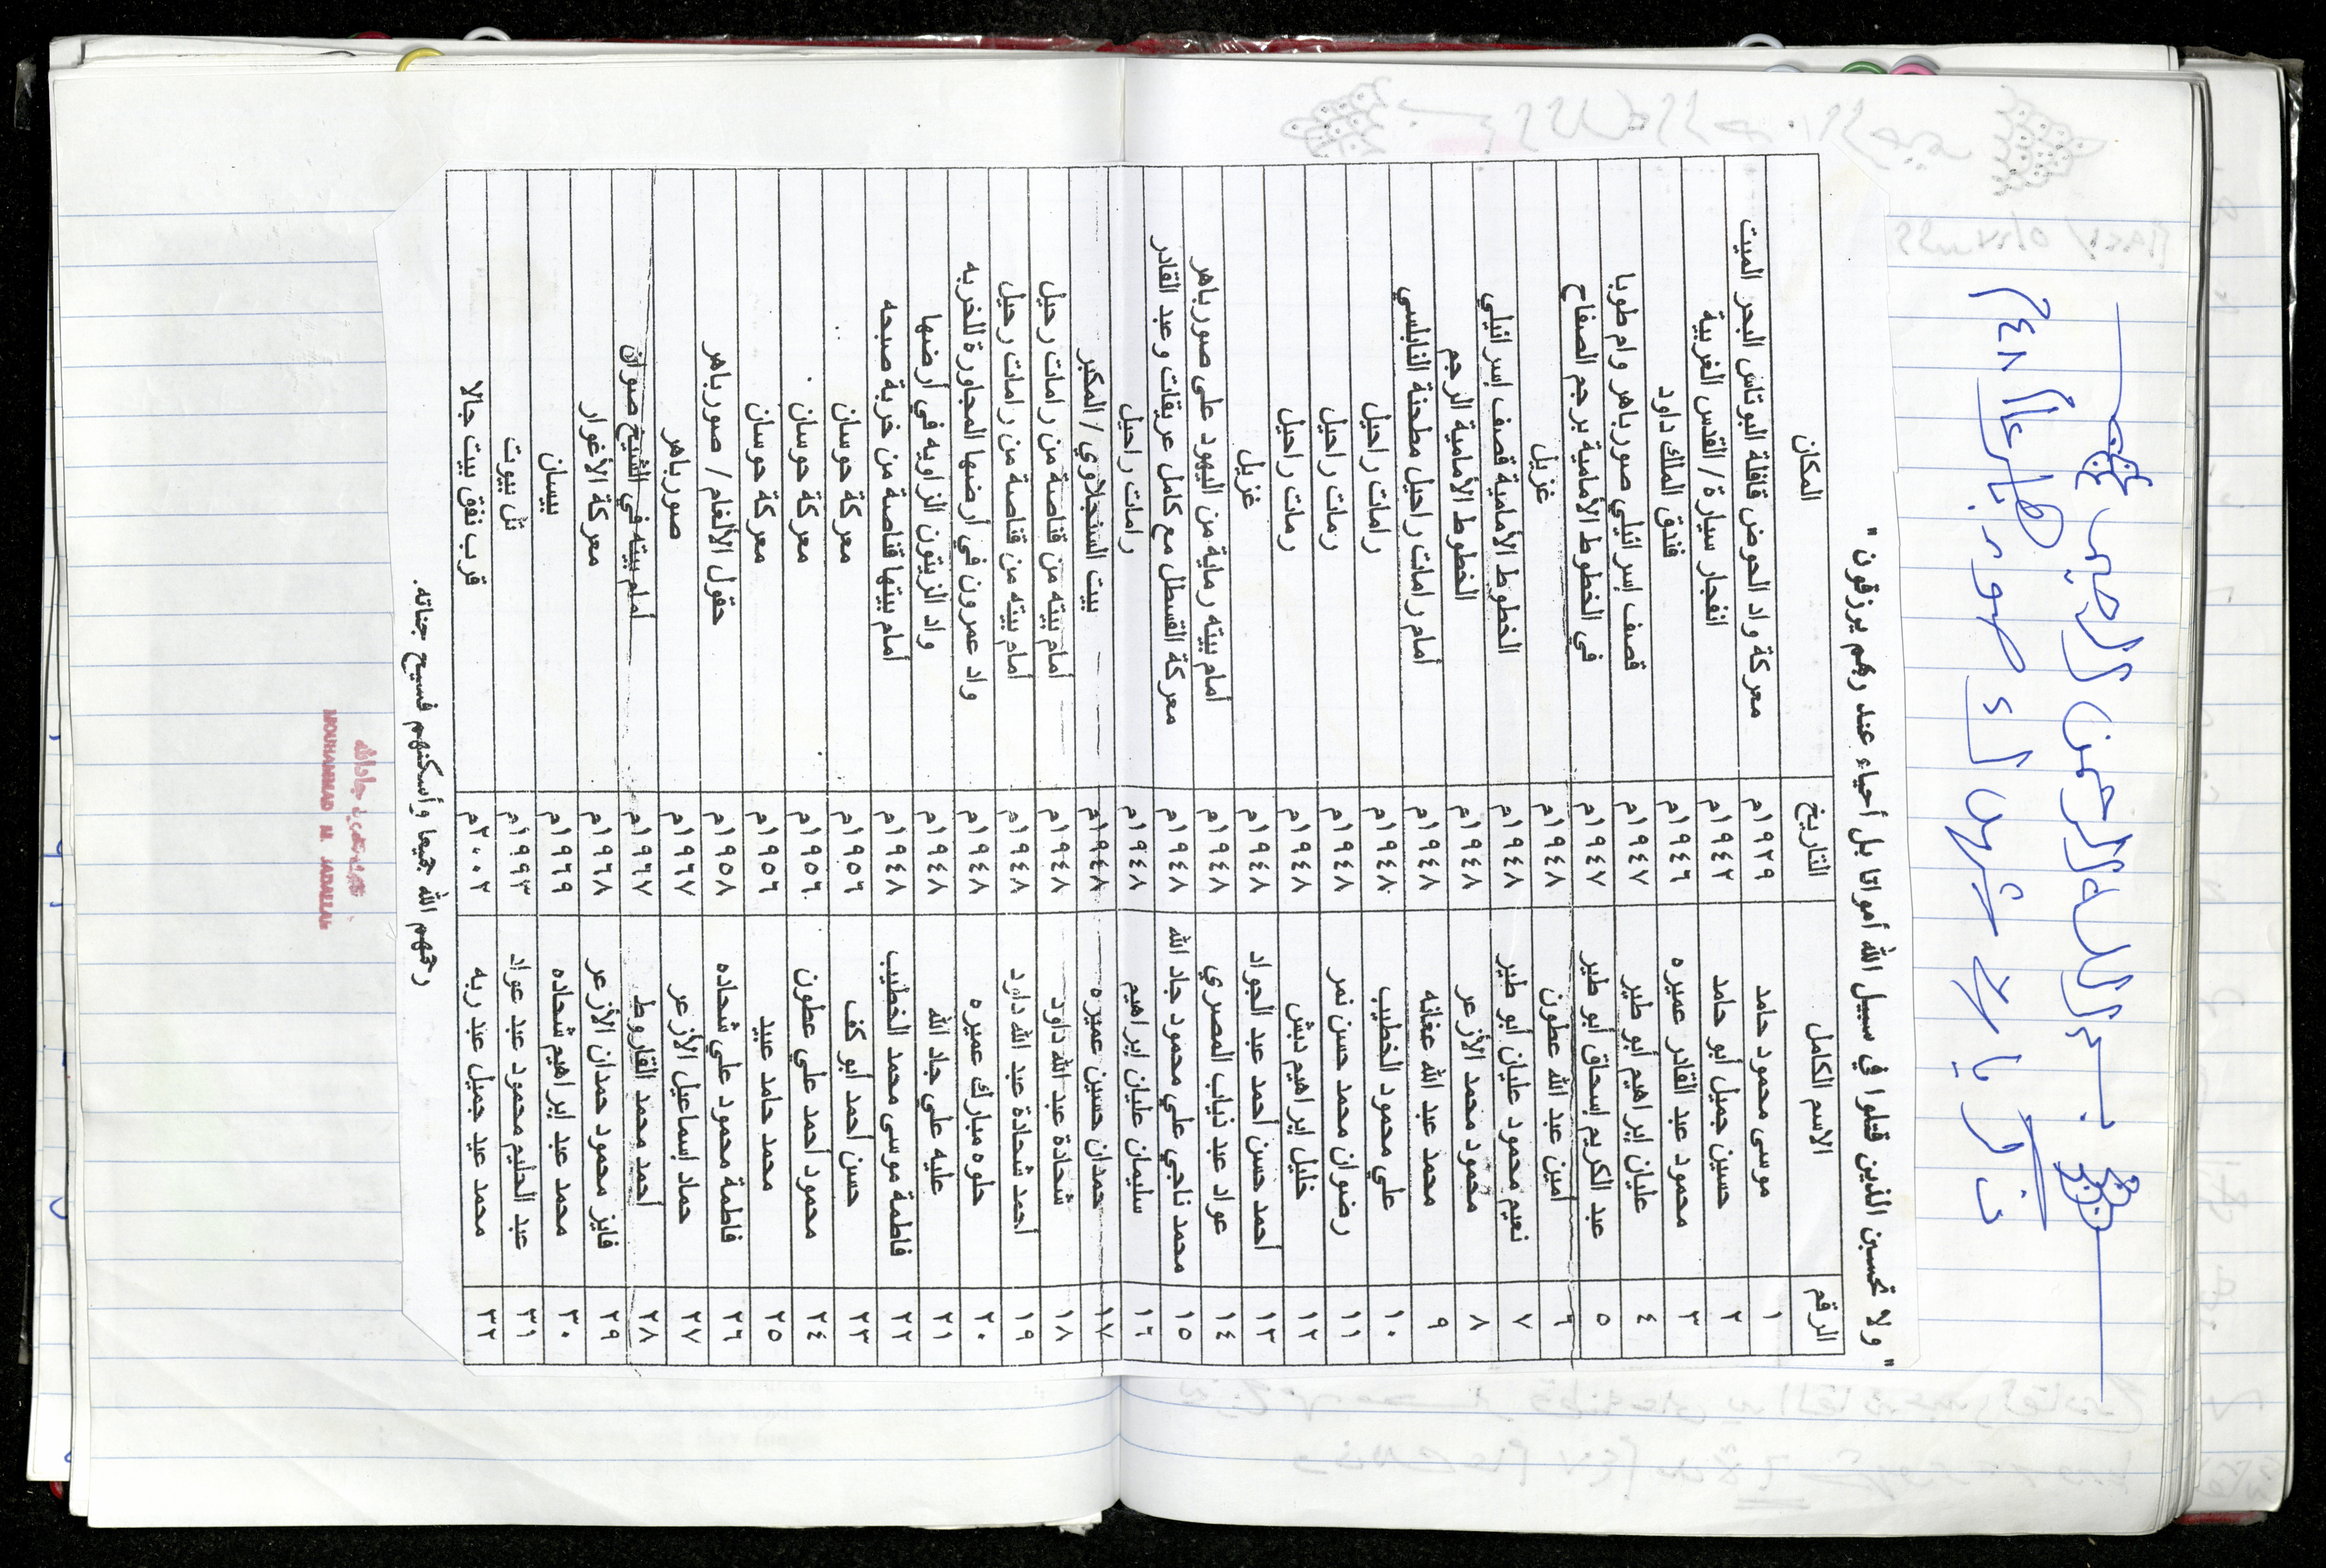 بسم الله الرحمن الرحيم
ذكريات شهداء صور باهر عام ٤٨م
" ولا تحسبن الذين قتلوا في سبيل الله أمواتا بل أحياء عند ربهم يرزقون "
الرقم الاسم الكامل التاريخ المكان
١ موسى محمود حامد ١٩٢٩م معركة واد الحوض قافلة البوتاس البحر الميت
٢ حسين جميل أبو حامد ١٩٤٢م انفجار سيارة / القدس الغربية
٣ محمود عبد القادر عميره ١٩٤٦م فندق الملك داود
٤ عليان إبراهيم أبو طير ١٩٤٧م قصف إسرائيلي صورباهر وام طوبا
٥ عبد الكريم إسحاق أبو طير ١٩٤٧م في الخطوط الأمامية برجم الصفاح
٦ أمين عبد الله عطون ١٩٤٨م غزيل
٧ نعيم محمود عليان أبو طير ١٩٤٨م الخطوط الأمامية قصف إسرائيلي
٨ محمود محمد الأزعر ١٩٤٨م الخطوط الأمامية الرجم
٩ محمد عبد الله عفانه ١٩٤٨م أمام رامات راحيل مطحنة النابلسي
١٠ علي محمود الخطيب ١٩٤٨م رامات راحيل
١١ رضوان محمد حسن نمر ١٩٤٨م رمات راحيل
١٢ خليل إبراهيم دبش ١٩٤٨م رمات راحيل
١٣ أحمد حسن أحمد عبد الجواد ١٩٤٨م غزيل
١٤ عواد عبد ذياب المصري ١٩٤٨م أمام بيته رماية من اليهود على صورباهر
١٥ محمد ناجي علي محمود جاد الله ١٩٤٨م معركة القسطل مع كامل عريقات وعبد القادر
١٦ سليمان عليان ابراهيم ١٩٤٨م رامات راحيل
١٧ حمدان حسين عميره ١٩٤٨م بيت السنجلاوي / المكبر
١٨ شحادة عبد الله داود ١٩٤٨م أمام بيته من قناصة من رامات رحيل
١٩ أحمد شحادة عبد الله داود ١٩٤٨م أمام بيته من قناصة من رامات رحيل
٢٠ حلوه مبارك عميره ١٩٤٨م واد عمرون في أرضها المجاورة للخربه
٢١ عليه علي جاد الله ١٩٤٨م واد الزيتون الزاويه في أرضها
٢٢ فاطمة موسى محمد الخطيب ١٩٤٨م أمام بيتها قناصة من خربة صبحه
٢٣ حسن أحمد أبو كف ١٩٥٦م معركة حوسان
٢٤ محمود أحمد علي عطون ١٩٥٦م معركة حوسان
٢٥ محمد حامد عبيد ١٩٥٦م معركة حوسان
٢٦ فاطمة محمود علي شحاده ١٩٥٨م حقول الألغام / صورباهر
٢٧ حماد إسماعيل الأزعر ١٩٦٧م صورباهر
٢٨ أحمد محمد القاروط ١٩٦٧م أمام بيته في الشيخ صوان
٢٩ فايز محمود حمدان الأزعر ١٩٦٨م معركة الأغوار
٣٠ محمد عبد ابراهيم شحاده ١٩٦٩م بيسان
٣١ عبد الحليم محمود عبد عواد ١٩٩٣م تل بيوت
٣٢ محمد عيد جميل عبد ربه ٢٠٠٢م قرب نفق بيت جالا
رحمهم الله جميعا وأسكنهم فسيح جناته.
MOUHAMMAD M. JADALLAH